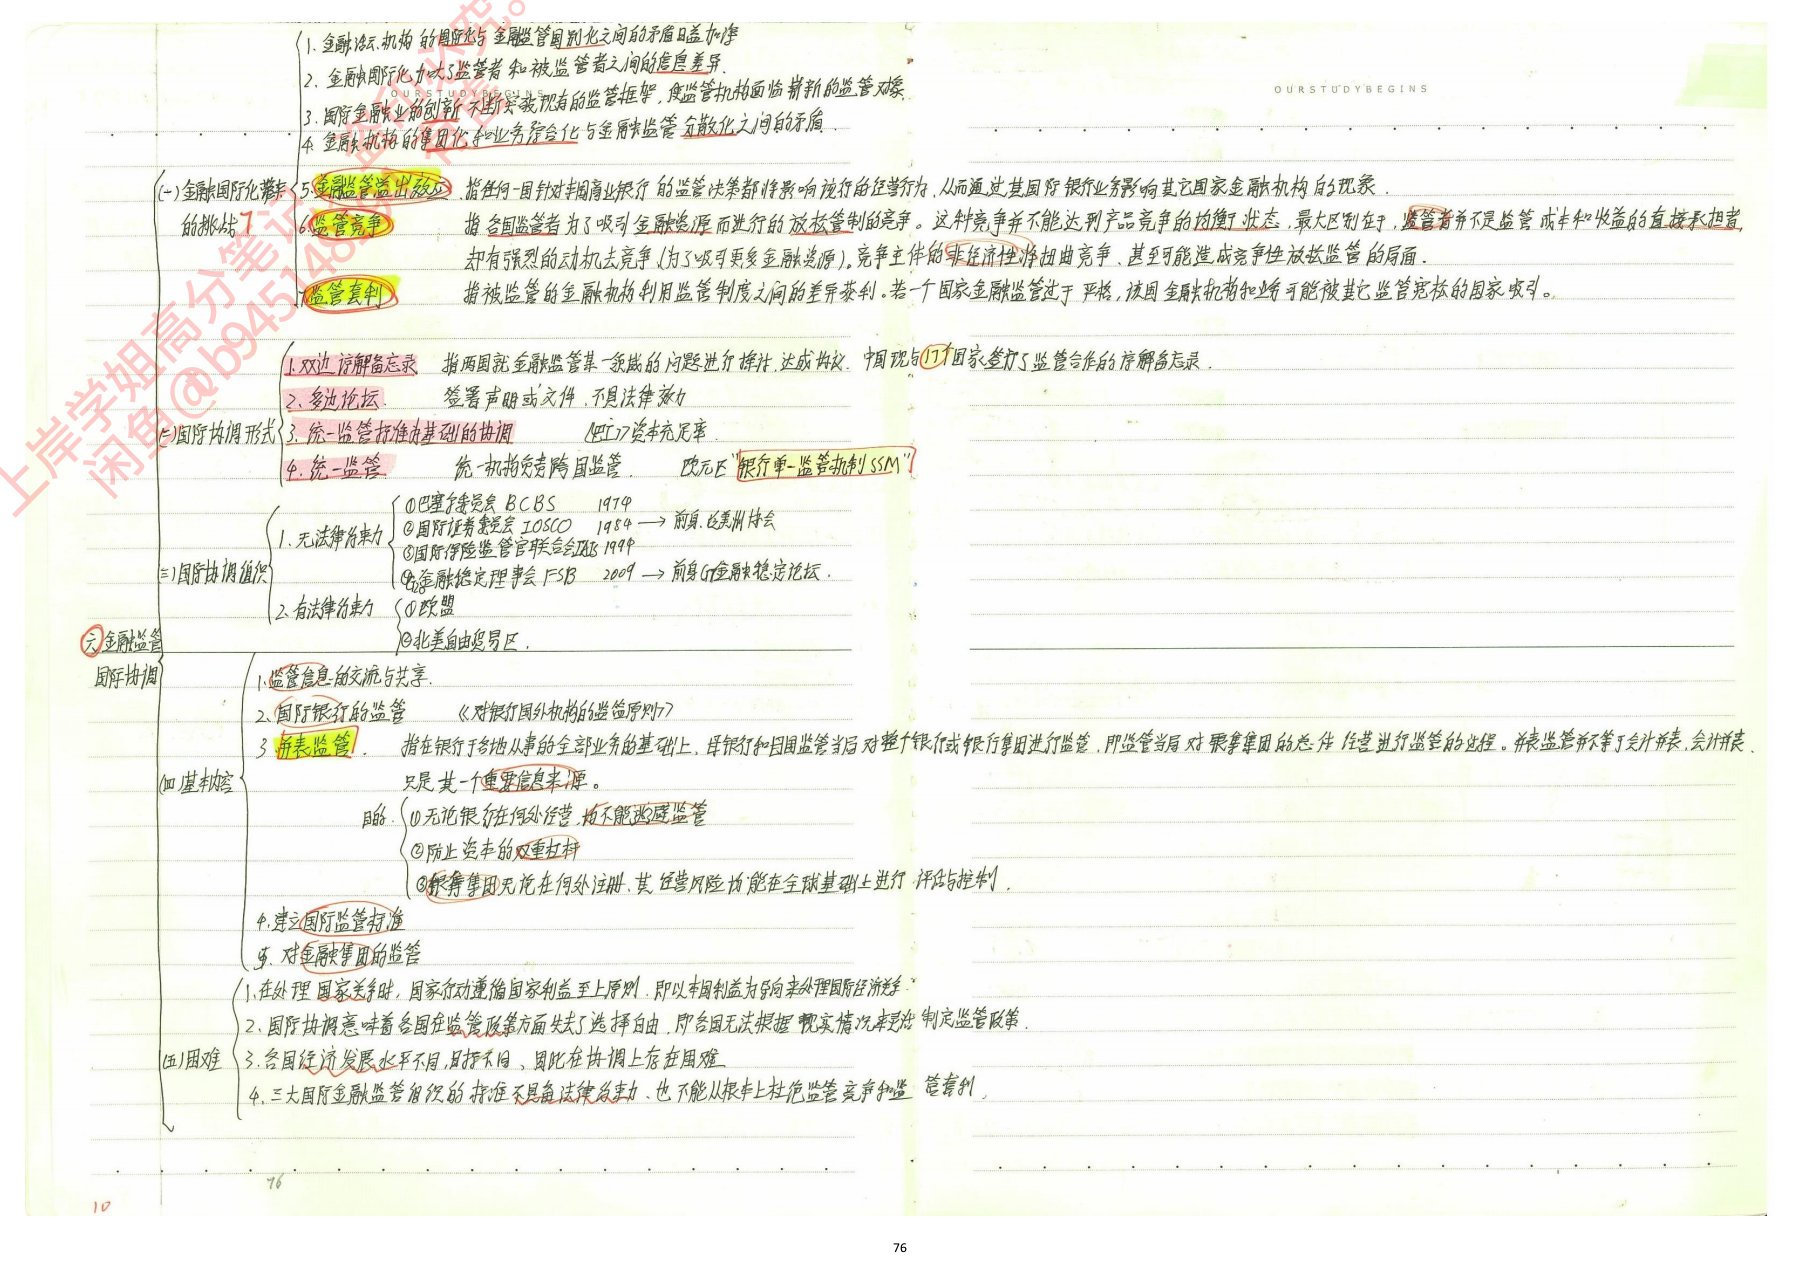 1. 金融活动、机构的国际化与金融监管国别化之间的矛盾日益加深
2. 金融国际化加大了监管者和被监管者之间的信息差异.
OURSTUDYBEGINS
OURSTUDYBEGINS
3. 国际金融业的创新不断突破现有的监管框架, 使监管机构面临崭新的监管对象.
4. 金融机构的集团化和业务综合化与金融监管分散化之间的矛盾.
(一)金融国际化带来的挑战7
5. 金融监管溢出效应 指任何一国针对本国商业银行的监管决策都将影响该行的经营行为, 从而通过其国际银行业务影响其它国家金融机构的现象.
6. 监管竞争 指各国监管者为了吸引金融资源而进行的放松管制的竞争。这种竞争并不能达到产品竞争的均衡状态. 最大区别在于, 监管者并不是监管成本和收益的直接承担者,
却有强烈的动机去竞争(为了吸引更多金融资源)。竞争主体的非经济性将扭曲竞争、甚至可能造成竞争性放松监管的局面.
7. 监管套利 指被监管的金融机构利用监管制度之间的差异获利。若一个国家金融监管过于严格, 该国金融机构和业务可能被其它监管宽松的国家吸引。
1. 双边谅解备忘录 指两国就金融监管某一领域的问题进行探讨, 达成协议. 中国现与17个国家签订了监管合作的谅解备忘录.
2. 多边论坛. 签署声明或文件, 不具法律效力
(二)国际协调形式
3. 统一监管标准为基础的协调 《巴Ⅰ》资本充足率.
4. 统一监管 统一机构负责跨国监管. 欧元区"银行单一监管机制SSM"
①巴塞尔委员会 BCBS 1974
1. 无法律约束力
②国际证券委员会 IOSCO 1984 → 前身: 泛美洲协会
③国际保险监管官联合会IAIS 1994
(三)国际协调组织
④金融稳定理事会 FSB 2009 → 前身G7金融稳定论坛.
2. 有法律约束力 ①欧盟
②北美自由贸易区.
六 金融监管
国际协调
1. 监管信息的交流与共享.
2. 国际银行的监管 《对银行国外机构的监管原则》
3. 并表监管. 指在银行于各地从事的全部业务的基础上, 母银行和母国监管当局对整个银行或银行集团进行监管, 即监管当局对银行集团的总体经营进行监管的过程。并表监管并不等于会计并表, 会计并表
只是其一个重要信息来源。
(四)基本内容
目的. ①无论银行在何处经营, 均不能逃避监管
②防止资本的双重杠杆
③银行集团无论在何处注册, 其经营风险均能在全球基础上进行评估与控制.
4. 建立国际监管标准
5. 对金融集团的监管
1. 在处理国家关系时, 国家行动遵循国家利益至上原则, 即以本国利益为导向来处理国际经济关系.
2. 国际协调意味着各国在监管政策方面失去了选择自由, 即各国无法根据现实情况来灵活制定监管政策.
(五)困难
3. 各国经济发展水平不同, 目标不同、因此在协调上存在困难
4. 三大国际金融监管组织的标准不具备法律约束力, 也不能从根本上杜绝监管竞争和监管套利.
76
10
上岸学姐高分笔记
闲鱼@b945148
76